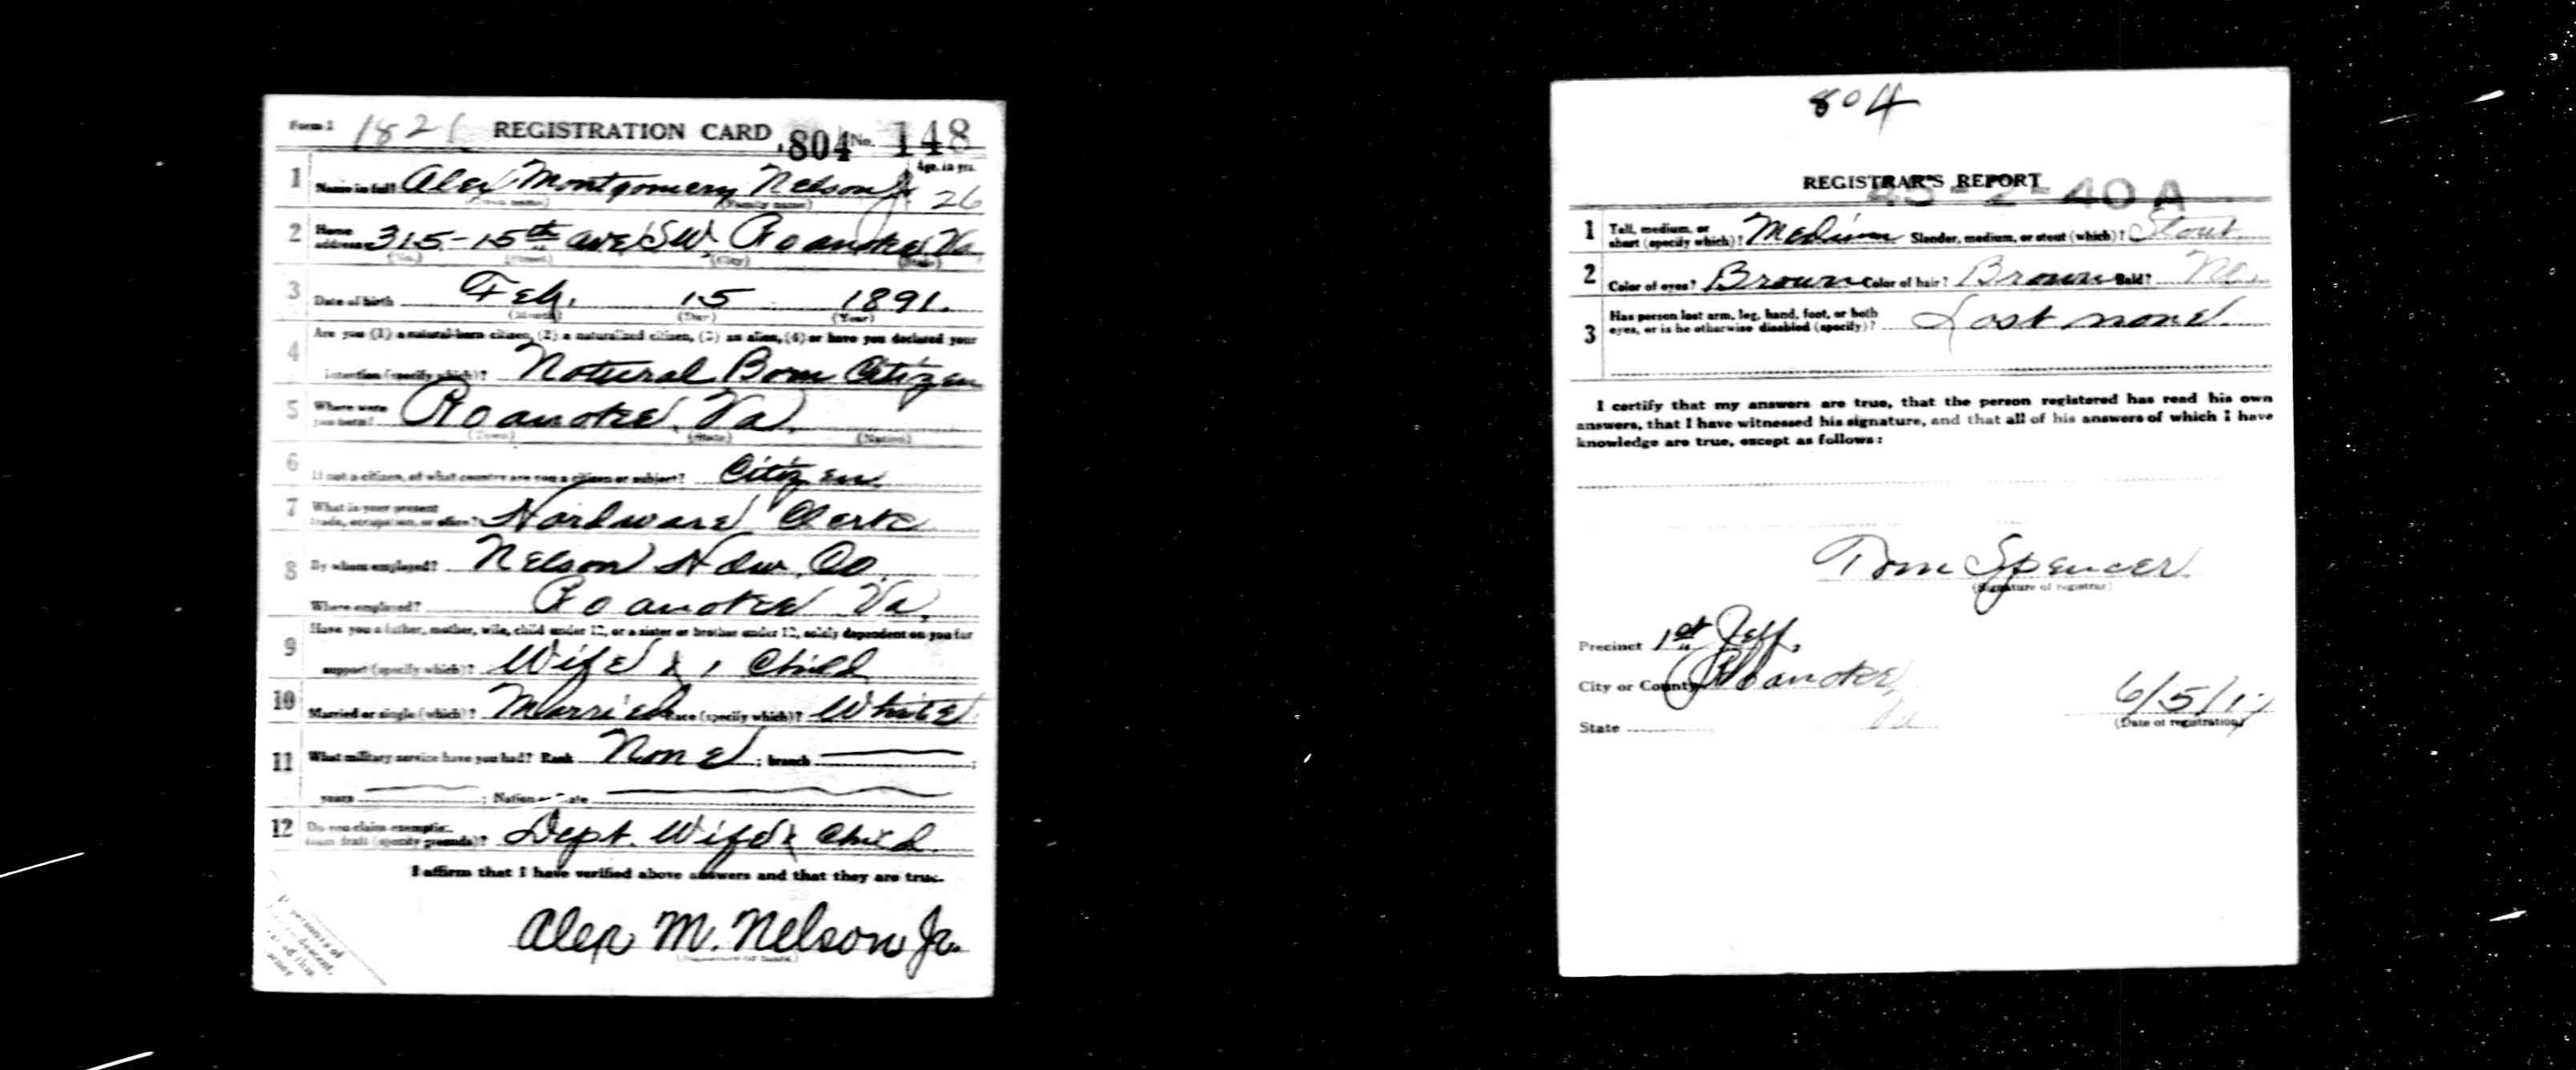 Form 1 1821 REGISTRATION CARD 804 No. 148
Age, in yrs.
1 Name in full Alex Montgomery Nelson Jr. 26
(Given name) (Family name)
2 Home address 315-15th ave SW Roanoke Va
(No.) (Street) (City) (State)
3 Date of birth Feb. 15 1891.
(Month) (Day) (Year)
4 Are you (1) a natural-born citizen, (2) a naturalized citizen, (3) an alien, (4) or have you declared your
intention (specify which)? Natural Born Citizen
5 Where were you born? Roanoke, Va.
(Town) (State) (Nation)
6 If not a citizen, of what country are you a citizen or subject? Citizen
7 What is your present trade, occupation, or office? Hardware Clerk
8 By whom employed? Nelson Hdw. Co.
Where employed? Roanoke Va,
9 Have you a father, mother, wife, child under 12, or a sister or brother under 12, solely dependent on you for
support (specify which)? Wife & 1 Child
10 Married or single (which)? Married Race (specify which)? White
11 What military service have you had? Rank None ; branch ;
years ; Nation or State
12 Do you claim exemption from draft (specify grounds)? Dept. Wife & Child.
I affirm that I have verified above answers and that they are true.
Alex M. Nelson Jr.
804
REGISTRAR'S REPORT
45-2-40 A
1 Tall, medium, or short (specify which)? Medium Slender, medium, or stout (which)? Stout
2 Color of eyes? Brown Color of hair? Brown Bald? No
3 Has person lost arm, leg, hand, foot, or both eyes, or is he otherwise disabled (specify)? Lost none
I certify that my answers are true, that the person registered has read his own
answers, that I have witnessed his signature, and that all of his answers of which I have
knowledge are true, except as follows:
Tom Spencer
(Signature of registrar)
Precinct 1st Jeff.
City or County Roanoke,
State Va 6/5/17
(Date of registration)